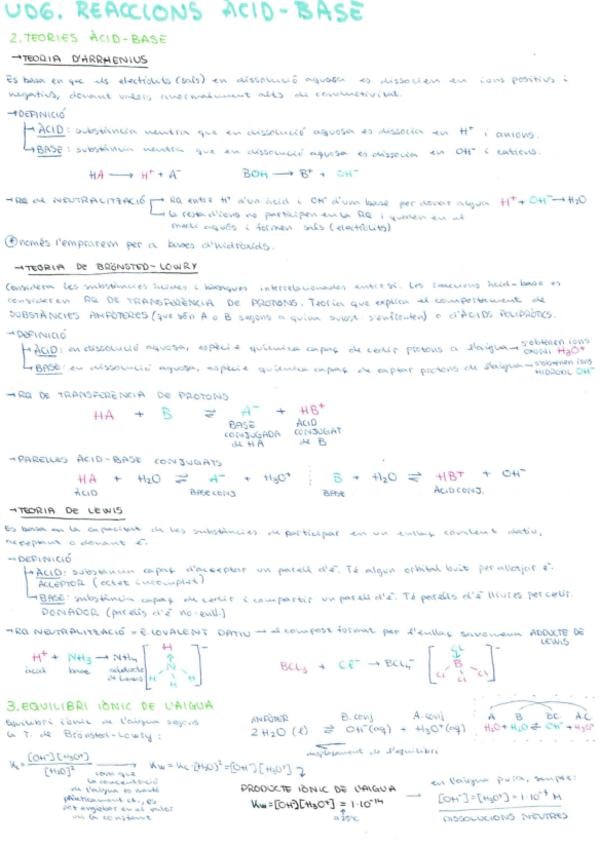 UD6. REACCIONS ÀCID-BASE
2. TEORIES ÀCID-BASE
→TEORIA D'ARRHENIUS
Es basa en que els electròlits (sals) en dissolució aquosa es dissocien en ions positius i
negatius, donant valors anormalment alts de conductivitat.
→DEFINICIÓ
ÀCID: substància neutra que en dissolució aquosa es dissocia en H⁺ i anions.
BASE: substància neutra que en dissolució aquosa es dissocia en OH⁻ i cations.
HA → H⁺ + A⁻ BOH → B⁺ + OH⁻
→RQ DE NEUTRALITZACIÓ RQ entre H⁺ d'un àcid i OH⁻ d'un base per donar aigua H⁺ + OH⁻ → H₂O
la resta d'ions no participen en la RQ i queden en el
medi aquós i formen sals (electròlits)
només l'emprarem per a bases d'hidròxids.
→TEORIA DE BRÖNSTED-LOWRY
Considera les substàncies àcides i bàsiques interrelacionades entre si. Les reaccions àcid-base es
consideren RQ DE TRANSFERÈNCIA DE PROTONS. Teoria que explica el comportament de
SUBSTÀNCIES AMFÒTERES (que són A o B segons a quina subst s'enfronten) o d'ÀCIDS POLIPRÒTICS.
→DEFINICIÓ
ÀCID: en dissolució aquosa, espècie química capaç de cedir protons a l'aigua → s'obtenen ions OXONI H₃O⁺
BASE: en dissolució aquosa, espècie química capaç de captar protons de l'aigua → s'obtenen ions HIDROXIL OH⁻
→RQ DE TRANSFERÈNCIA DE PROTONS
HA + B ⇌ A⁻ + HB⁺
BASE CONJUGADA de HA ÀCID CONJUGAT de B
→PARELLES ÀCID-BASE CONJUGATS
HA + H₂O ⇌ A⁻ + H₃O⁺ B + H₂O ⇌ HB⁺ + OH⁻
ÀCID BASE CONJ. BASE ÀCID CONJ.
→TEORIA DE LEWIS
Es basa en la capacitat de les substàncies de participar en un enllaç covalent datiu,
acceptant o donant é.
→DEFINICIÓ
ÀCID: substància capaç d'acceptar un parell d'é. Té algun orbital buit per allotjar é.
ACCEPTOR (octet incomplet)
BASE: substància capaç de cedir i compartir un parell d'é. Té parells d'é lliures per cedir.
DONADOR (parells d'é no-enll.)
→RQ NEUTRALITZACIÓ = E COVALENT DATIU → el compost format per l'enllaç s'anomena ADUCTE DE
LEWIS
H⁺ + NH₃ → NH₄ [H N H H H]⁻ BCl₃ + Cl⁻ → BCl₄⁻ [Cl B Cl Cl Cl]⁻
àcid base adducte de Lewis
3. EQUILIBRI IÒNIC DE L'AIGUA
Equilibri iònic de l'aigua segons
la T. de Brönsted-Lowry:
AMFÒTER B. conj A. conj
2 H₂O (l) ⇌ OH⁻(aq) + H₃O⁺(aq)
desplaçament de l'equilibri
A B BC. A.C
H₂O + H₂O ⇌ OH⁻ + H₃O⁺
Kc = [OH⁻][H₃O⁺] / [H₂O]² → Kw = Kc·[H₂O]² = [OH⁻][H₃O⁺]
com que
la concentració
de l'aigua es manté
pràcticament ct., es
pot englobar en el valor
de la constant
PRODUCTE IÒNIC DE L'AIGUA
Kw = [OH⁻][H₃O⁺] = 1·10⁻¹⁴
a 25ºC
en l'aigua pura, sempre:
[OH⁻] = [H₃O⁺] = 1·10⁻⁷ M
DISSOLUCIONS NEUTRES